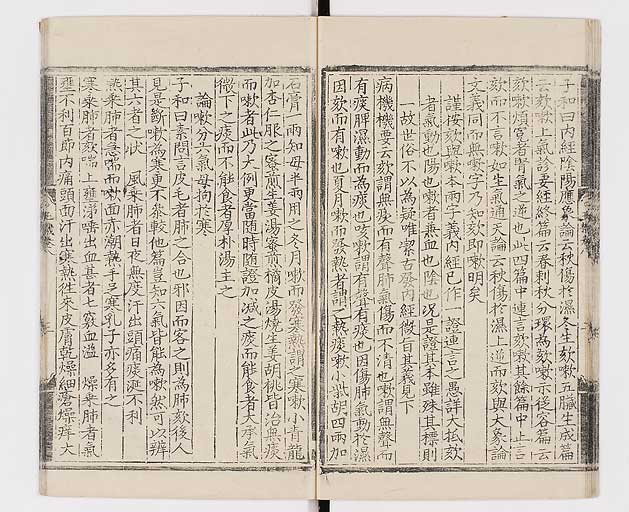 子和曰內經陰陽應象論云秋傷於濕冬生欬嗽五臟生成篇
云欬嗽上氣診要經終篇云春刺秋分環為欬嗽示從容篇云
欬嗽煩冤者腎氣之逆也此四篇中連言欬嗽其餘篇中止言
欬而不言嗽如生氣通天論云秋傷於濕上逆而欬與大象論
文義同而無嗽字乃知欬即嗽明矣
謹按欬與嗽本兩字義內經已作一證連言之愚詳大抵欬
者氣動也陽也嗽者無血也陰也况是證其本雖殊其標則
一故世俗不以為疑唯潔古發內經微旨其義見下
病機機要云欬謂無痰而有聲肺氣傷而不清也嗽謂無聲而
有痰脾濕動而為痰也咳嗽謂有聲有痰也因傷肺氣動於濕
因欬而有嗽也夏月嗽而發熱者謂之熱痰嗽小柴胡四兩加
石膏一兩知母半兩用之冬月嗽而發寒熱謂之寒嗽小青龍
加杏仁服之蜜煎生姜湯蜜煎橘皮湯燒生姜胡桃皆治無痰
而嗽者此乃大例更當随時随證加減之痰而能食者大承氣
微下之痰而不能食者厚朴湯主之
論嗽分六氣毋拘於寒
子和曰素問言皮毛者肺之合也邪因而客之則為肺欬後人
見是說嗽為寒更不叅較他篇豈知六氣皆能為嗽然可以辨
其六者之狀 風乘肺者日夜無度汗出頭痛痰涎不利
熱乘肺者急喘而嗽面赤潮熱手足寒乳子亦多有之
寒乘肺者欬喘上壅涕嚏出血甚者七竅血溢 燥乘肺者氣
壅不利百節內痛頭面汗出寒熱往來皮膚乾燥細瘡燥痒大